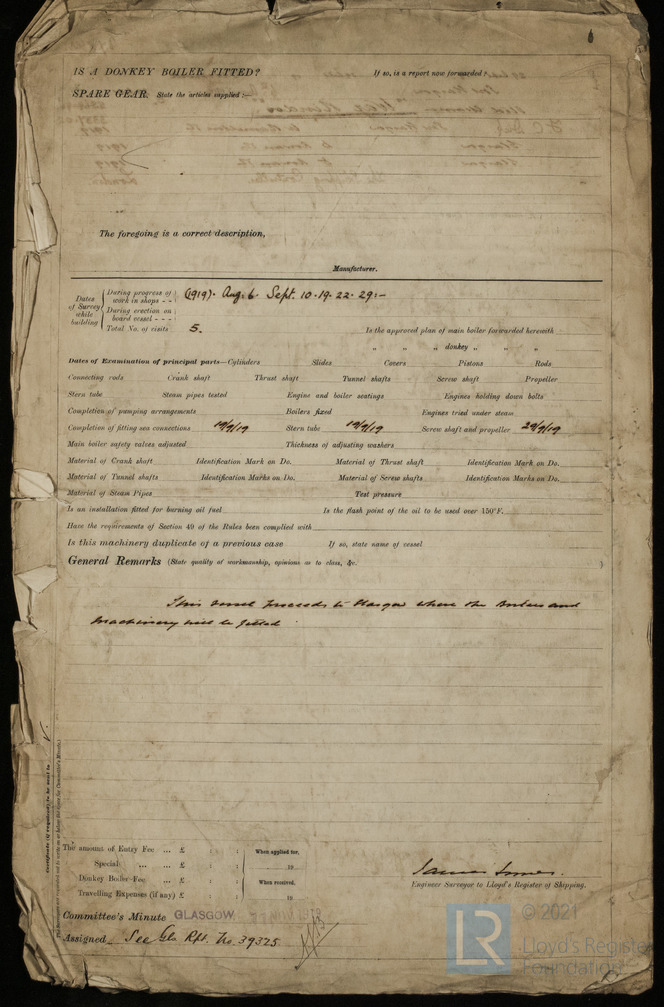 IS A DONKEY BOILER FITTED? If so, is a report now forwarded?
SPARE GEAR. State the articles supplied:—
The foregoing is a correct description,
Manufacturer.
Dates of Survey while building
During progress of work in shops - - (1919). Aug. 6. Sept. 10. 19. 22. 29:—
During erection on board vessel - - -
Total No. of visits 5. Is the approved plan of main boiler forwarded herewith
„ „ „ donkey „ „ „
Dates of Examination of principal parts—Cylinders Slides Covers Pistons Rods
Connecting rods Crank shaft Thrust shaft Tunnel shafts Screw shaft Propeller
Stern tube Steam pipes tested Engine and boiler seatings Engines holding down bolts
Completion of pumping arrangements Boilers fixed Engines tried under steam
Completion of fitting sea connections 19/9/19 Stern tube 19/9/19 Screw shaft and propeller 29/9/19
Main boiler safety valves adjusted Thickness of adjusting washers
Material of Crank shaft Identification Mark on Do. Material of Thrust shaft Identification Mark on Do.
Material of Tunnel shafts Identification Marks on Do. Material of Screw shafts Identification Marks on Do.
Material of Steam Pipes Test pressure
Is an installation fitted for burning oil fuel Is the flash point of the oil to be used over 150°F.
Have the requirements of Section 49 of the Rules been complied with
Is this machinery duplicate of a previous case If so, state name of vessel
General Remarks (State quality of workmanship, opinions as to class, &c.
This vessel proceeds to Glasgow where the Boilers and
Machinery will be fitted
Certificate (if required) to be sent to
The amount of Entry Fee ... £ : : When applied for,
Special ... ... £ : : 19
Donkey Boiler Fee ... £ : : When received,
Travelling Expenses (if any) £ : : 19
Engineer Surveyor to Lloyd's Register of Shipping.
Committee's Minute GLASGOW
Assigned See Gls Rpt. No. 39325
LR © 2021
Lloyd's Register
Foundation